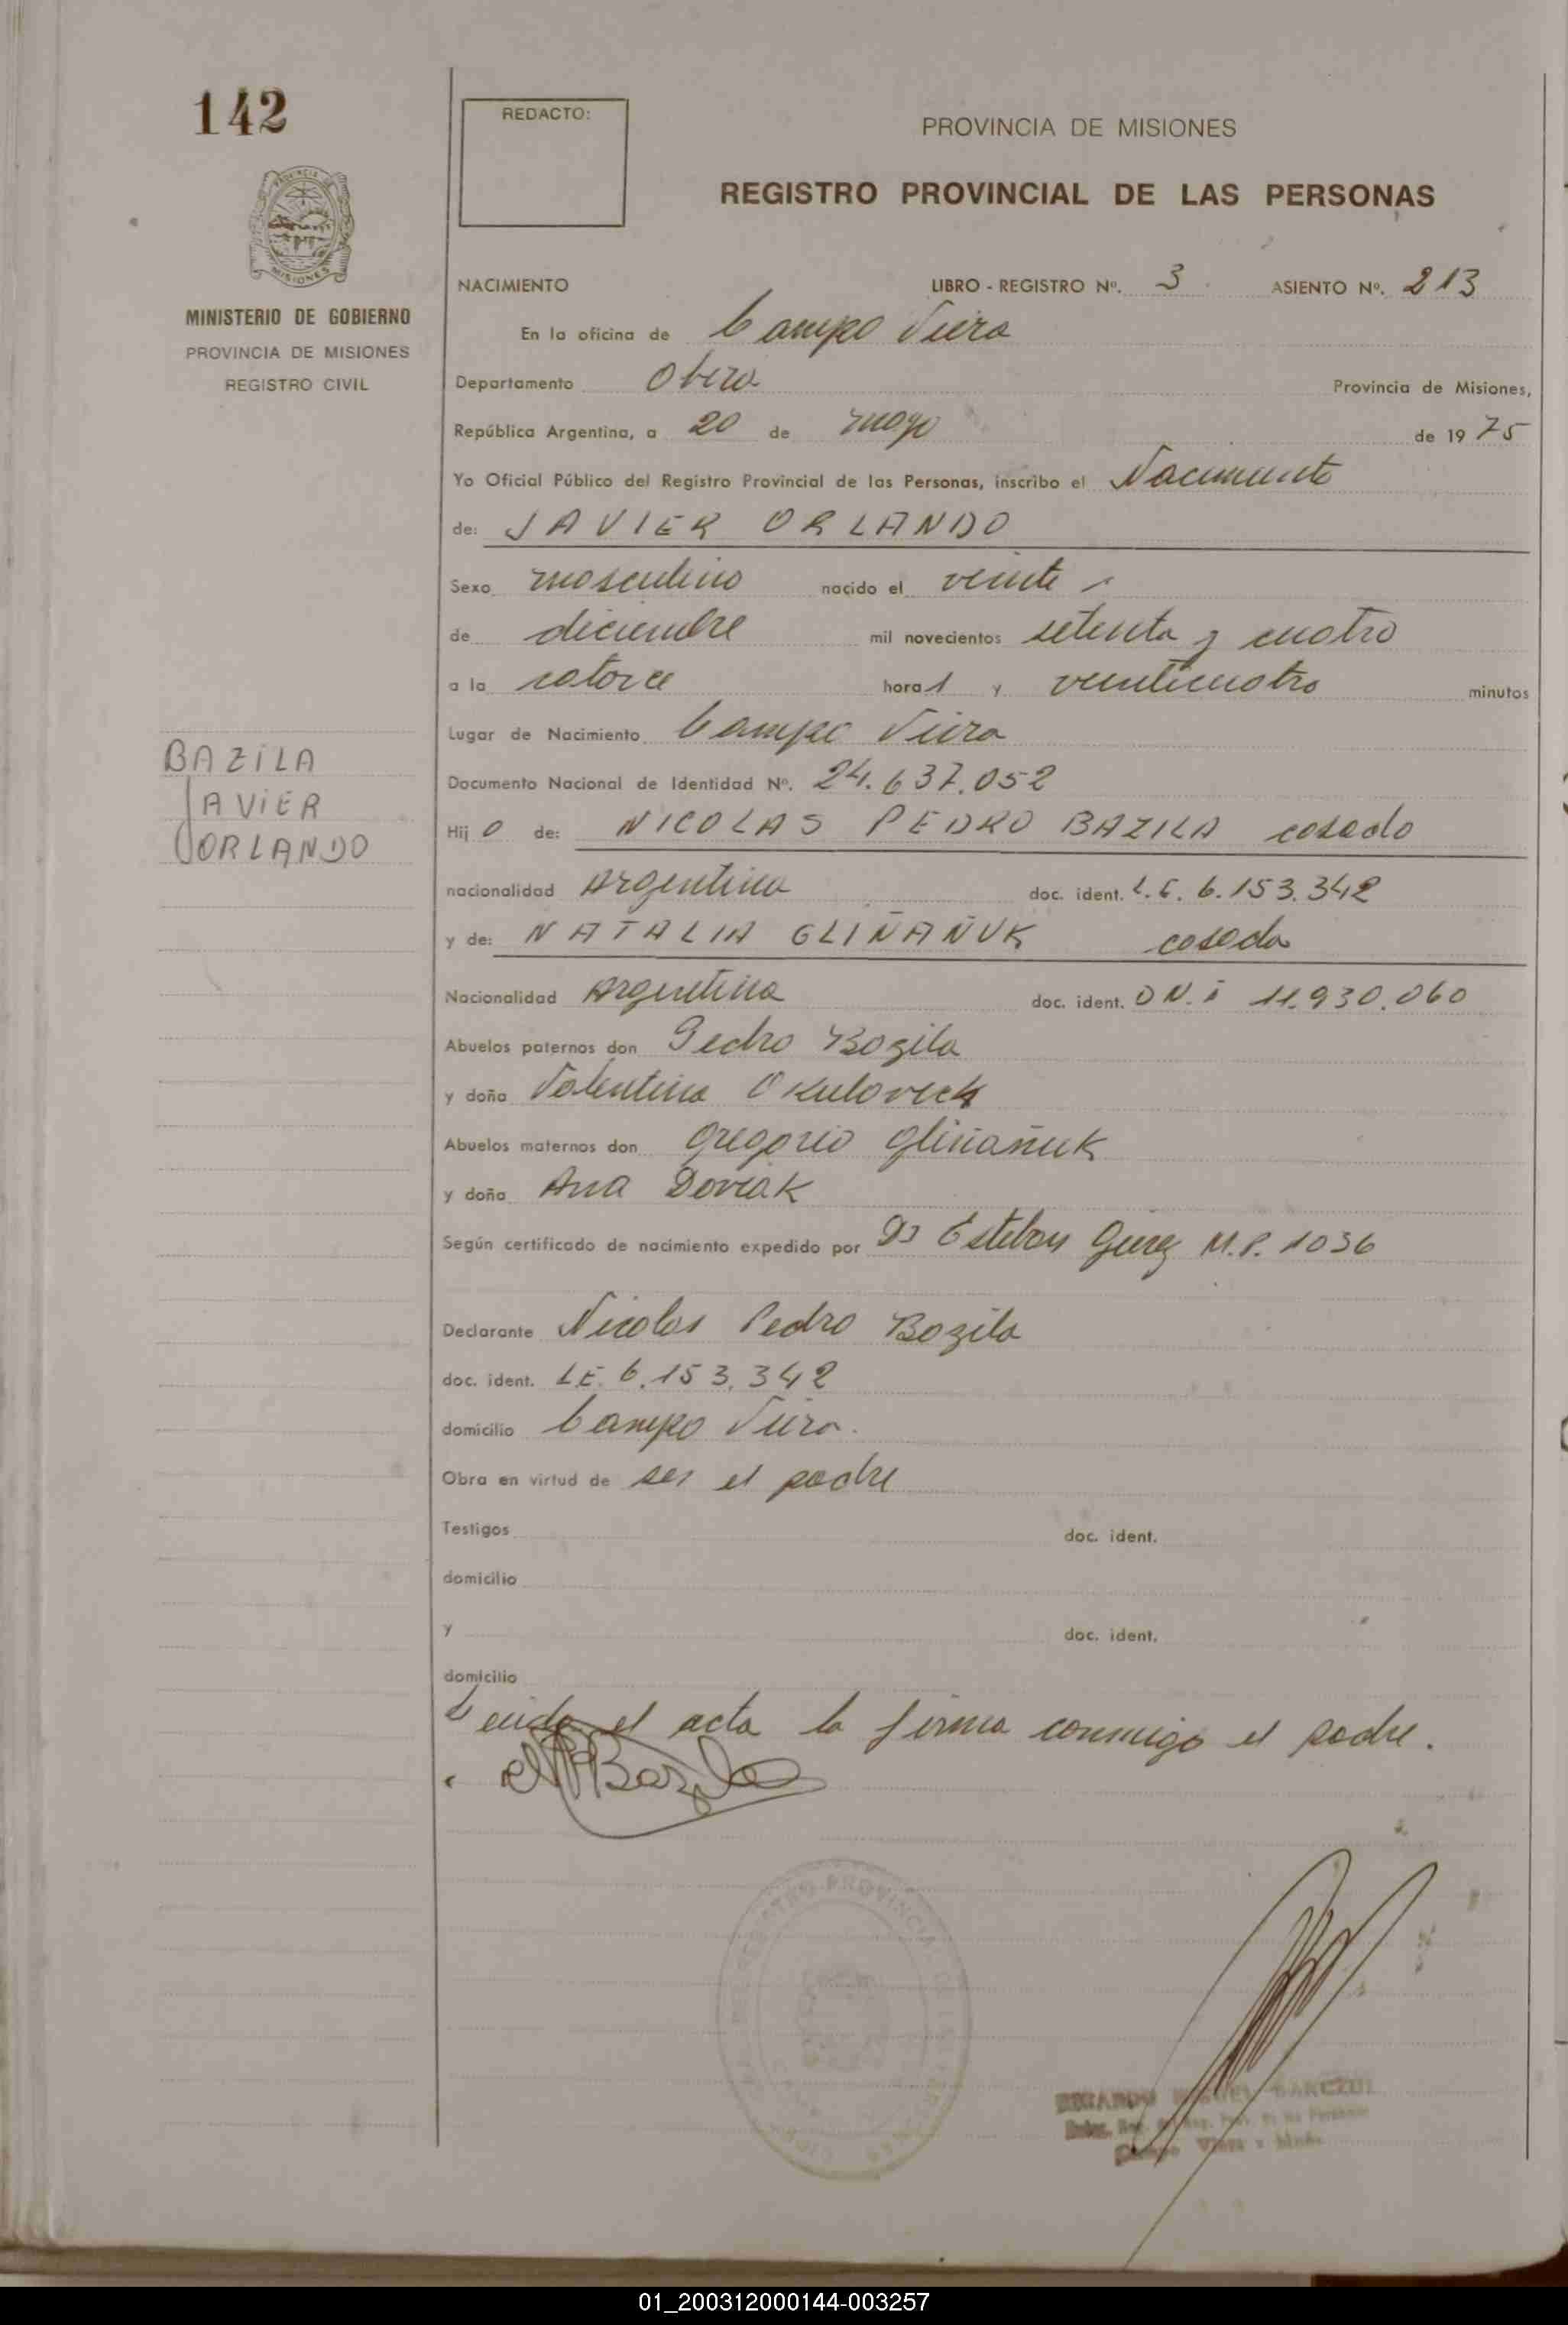 142
REDACTO:
PROVINCIA DE MISIONES
REGISTRO PROVINCIAL DE LAS PERSONAS
PROVINCIA DE
MISIONES
MINISTERIO DE GOBIERNO
PROVINCIA DE MISIONES
REGISTRO CIVIL
NACIMIENTO LIBRO - REGISTRO Nº. 3 ASIENTO Nº. 213
En la oficina de Campo Viera
Departamento Obera Provincia de Misiones,
República Argentina, a 20 de mayo de 1975
Yo Oficial Público del Registro Provincial de las Personas, inscribo el Nacimiento
de: JAVIER ORLANDO
Sexo masculino nacido el veinte
de diciembre mil novecientos setenta y cuatro
a la catorce horas y veinticuatro minutos
Lugar de Nacimiento Campo Viera
BAZILA
JAVIER
ORLANDO
Documento Nacional de Identidad Nº. 24.637.052
Hijo de: NICOLAS PEDRO BAZILA casado
nacionalidad Argentina doc. ident. L.E. 6.153.342
y de: NATALIA GLIÑAÑUK casada
Nacionalidad Argentina doc. ident. DN.i 11.930.060
Abuelos paternos don Pedro Bazila
y doña Valentina Okulovich
Abuelos maternos don Gregorio Gliñañuk
y doña Ana
Según certificado de nacimiento expedido por Dr Esteban M.P. 1036
Declarante Nicolas Pedro Bazila
doc. ident. L.E. 6.153.342
domicilio Campo Viera.
Obra en virtud de ser el padre
Testigos doc. ident.
domicilio
y doc. ident.
domicilio
Leida el acta la firma conmigo el padre.
Bazila
REGISTRO PROVINCIAL DE LAS PERSONAS
Campo Viera
01_200312000144-003257